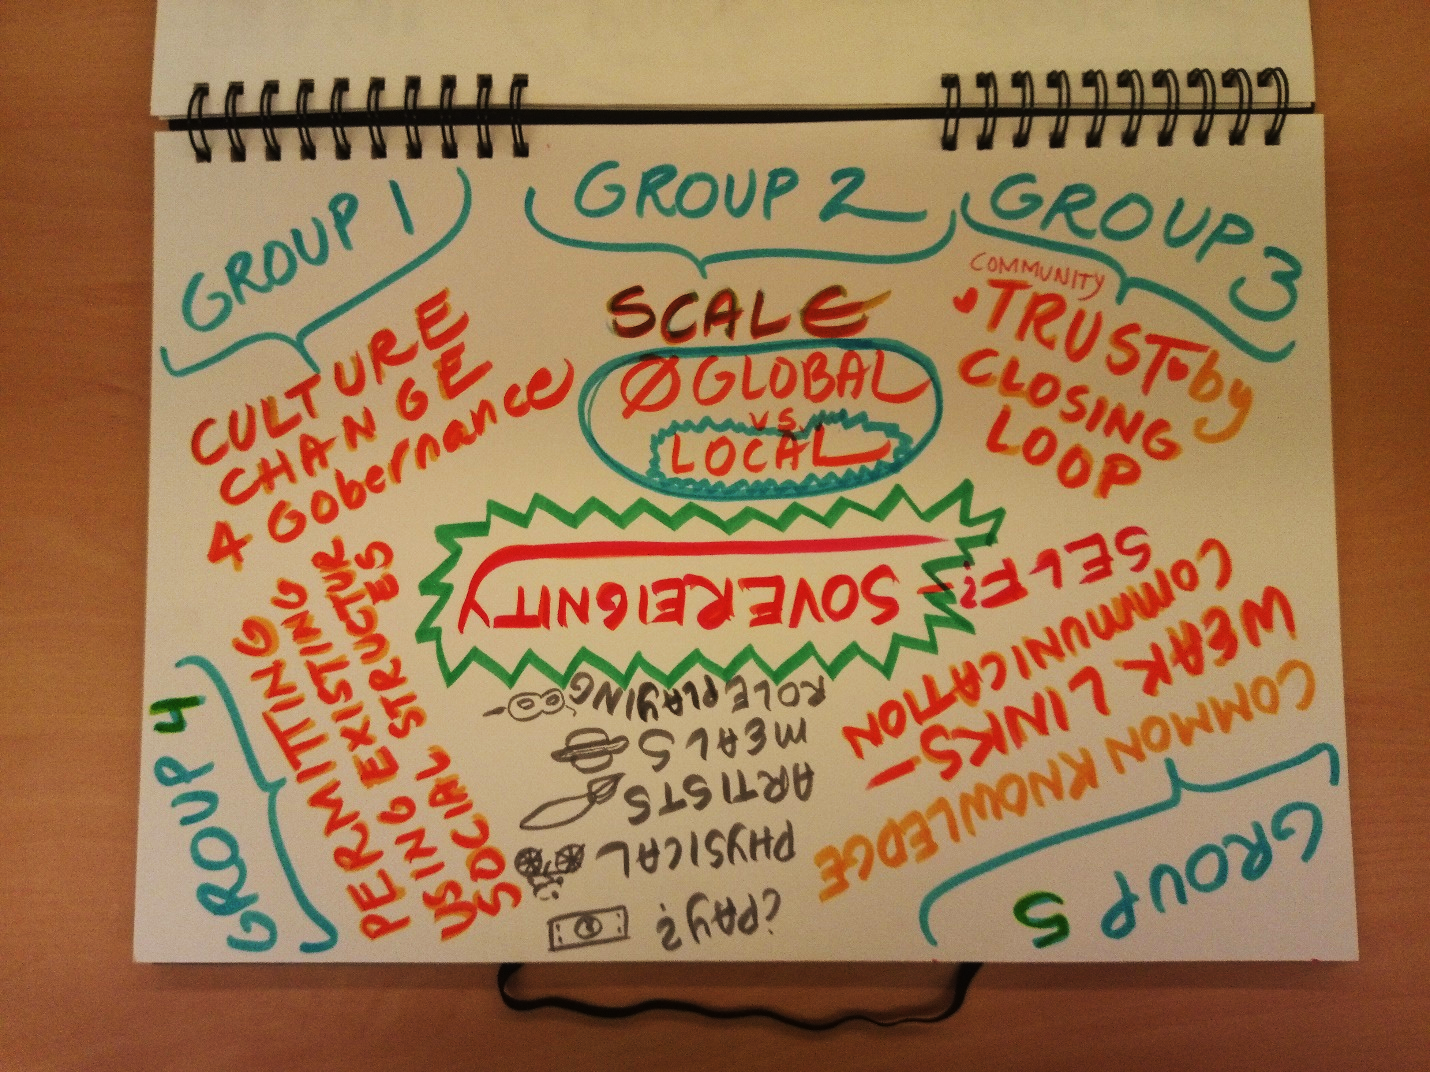 GROUP 1
CULTURE
CHANGE
4 Gobernance
GROUP 2
SCALE
Ø GLOBAL
VS.
LOCAL
GROUP 3
COMMUNITY
TRUST by
CLOSING
LOOP
GROUP 4
PERMITTING
USING EXISTING
SOCIAL STRUCTURES
GROUP 5
COMMON KNOWLEDGE
WEAK LINKS-
COMMUNICATION
SELF?
SOVEREIGNITY
¿PAY?
PHYSICAL
ARTISTS
MEALS
ROLE PLAYING